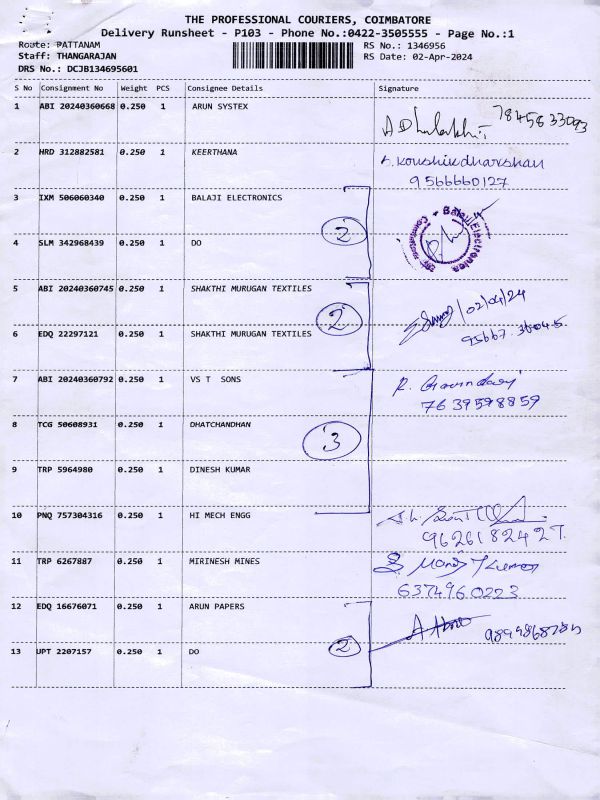 THE PROFESSIONAL COURIERS, COIMBATORE
Delivery Runsheet - P103 - Phone No.:0422-3505555 - Page No.:1
Route: PATTANAM RS No.: 1346956
Staff: THANGARAJAN RS Date: 02-Apr-2024
DRS No.: DCJB134695601
S No Consignment No Weight PCS Consignee Details Signature
1 ABI 20240360668 0.250 1 ARUN SYSTEX 7845833093
2 HRD 312882581 0.250 1 KEERTHANA S. Koushikdharshan
9566660127
3 IXM 506060340 0.250 1 BALAJI ELECTRONICS
2 Balaji Electronics
4 SLM 342968439 0.250 1 DO
5 ABI 20240360745 0.250 1 SHAKTHI MURUGAN TEXTILES 02/04/24
2
6 EDQ 22297121 0.250 1 SHAKTHI MURUGAN TEXTILES 95667.36045
7 ABI 20240360792 0.250 1 VS T SONS
7639598859
8 TCG 50608931 0.250 1 DHATCHANDHAN
3
9 TRP 5964980 0.250 1 DINESH KUMAR
10 PNQ 757304316 0.250 1 HI MECH ENGG
9626182427
11 TRP 6267887 0.250 1 MIRINESH MINES
6374960223
12 EDQ 16676071 0.250 1 ARUN PAPERS
2
13 UPT 2207157 0.250 1 DO